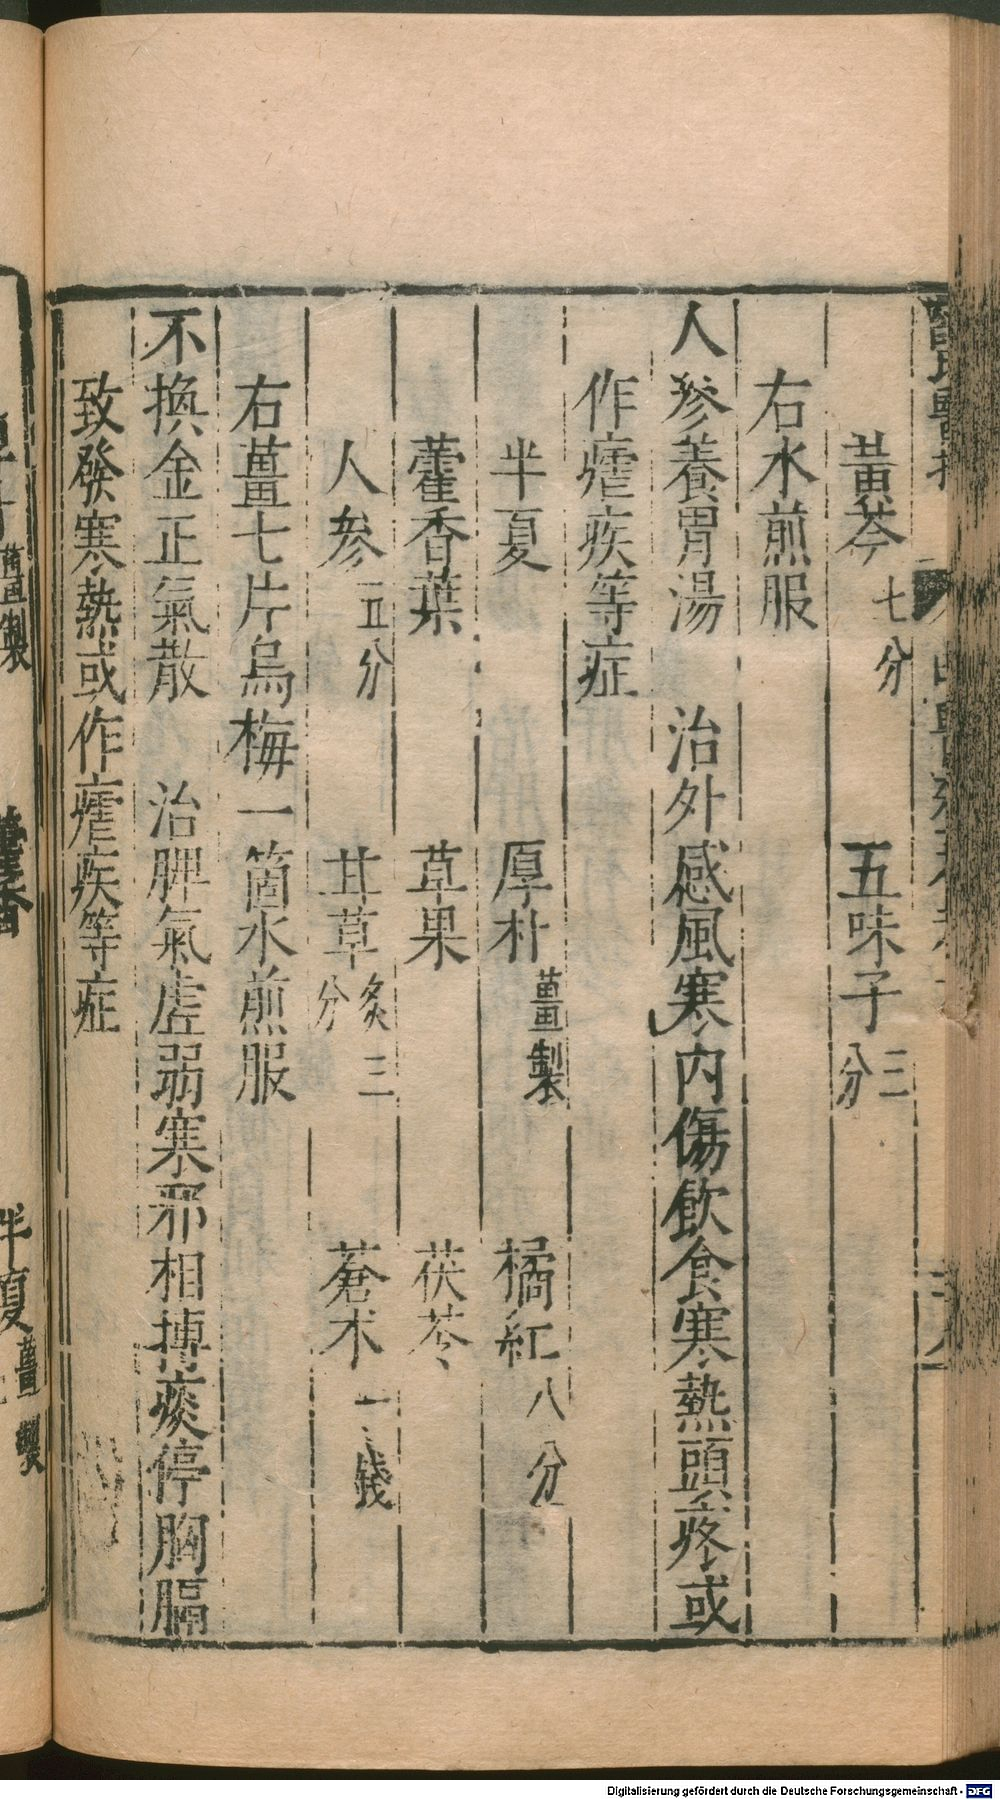 黃芩七分　五味子三分
右水煎服
人參養胃湯　治外感風寒內傷飲食寒熱頭疼或
作瘧疾等症
半夏　厚朴薑製　橘紅八分
藿香葉　草果　茯苓
人參五分　甘草炙三分　蒼朮一錢
右薑七片烏梅一箇水煎服
不換金正氣散　治脾氣虛弱寒邪相搏痰停胸膈
致發寒熱或作瘧疾等症
薑製
藿香
半夏薑製
Digitalisierung gefördert durch die Deutsche Forschungsgemeinschaft - DFG